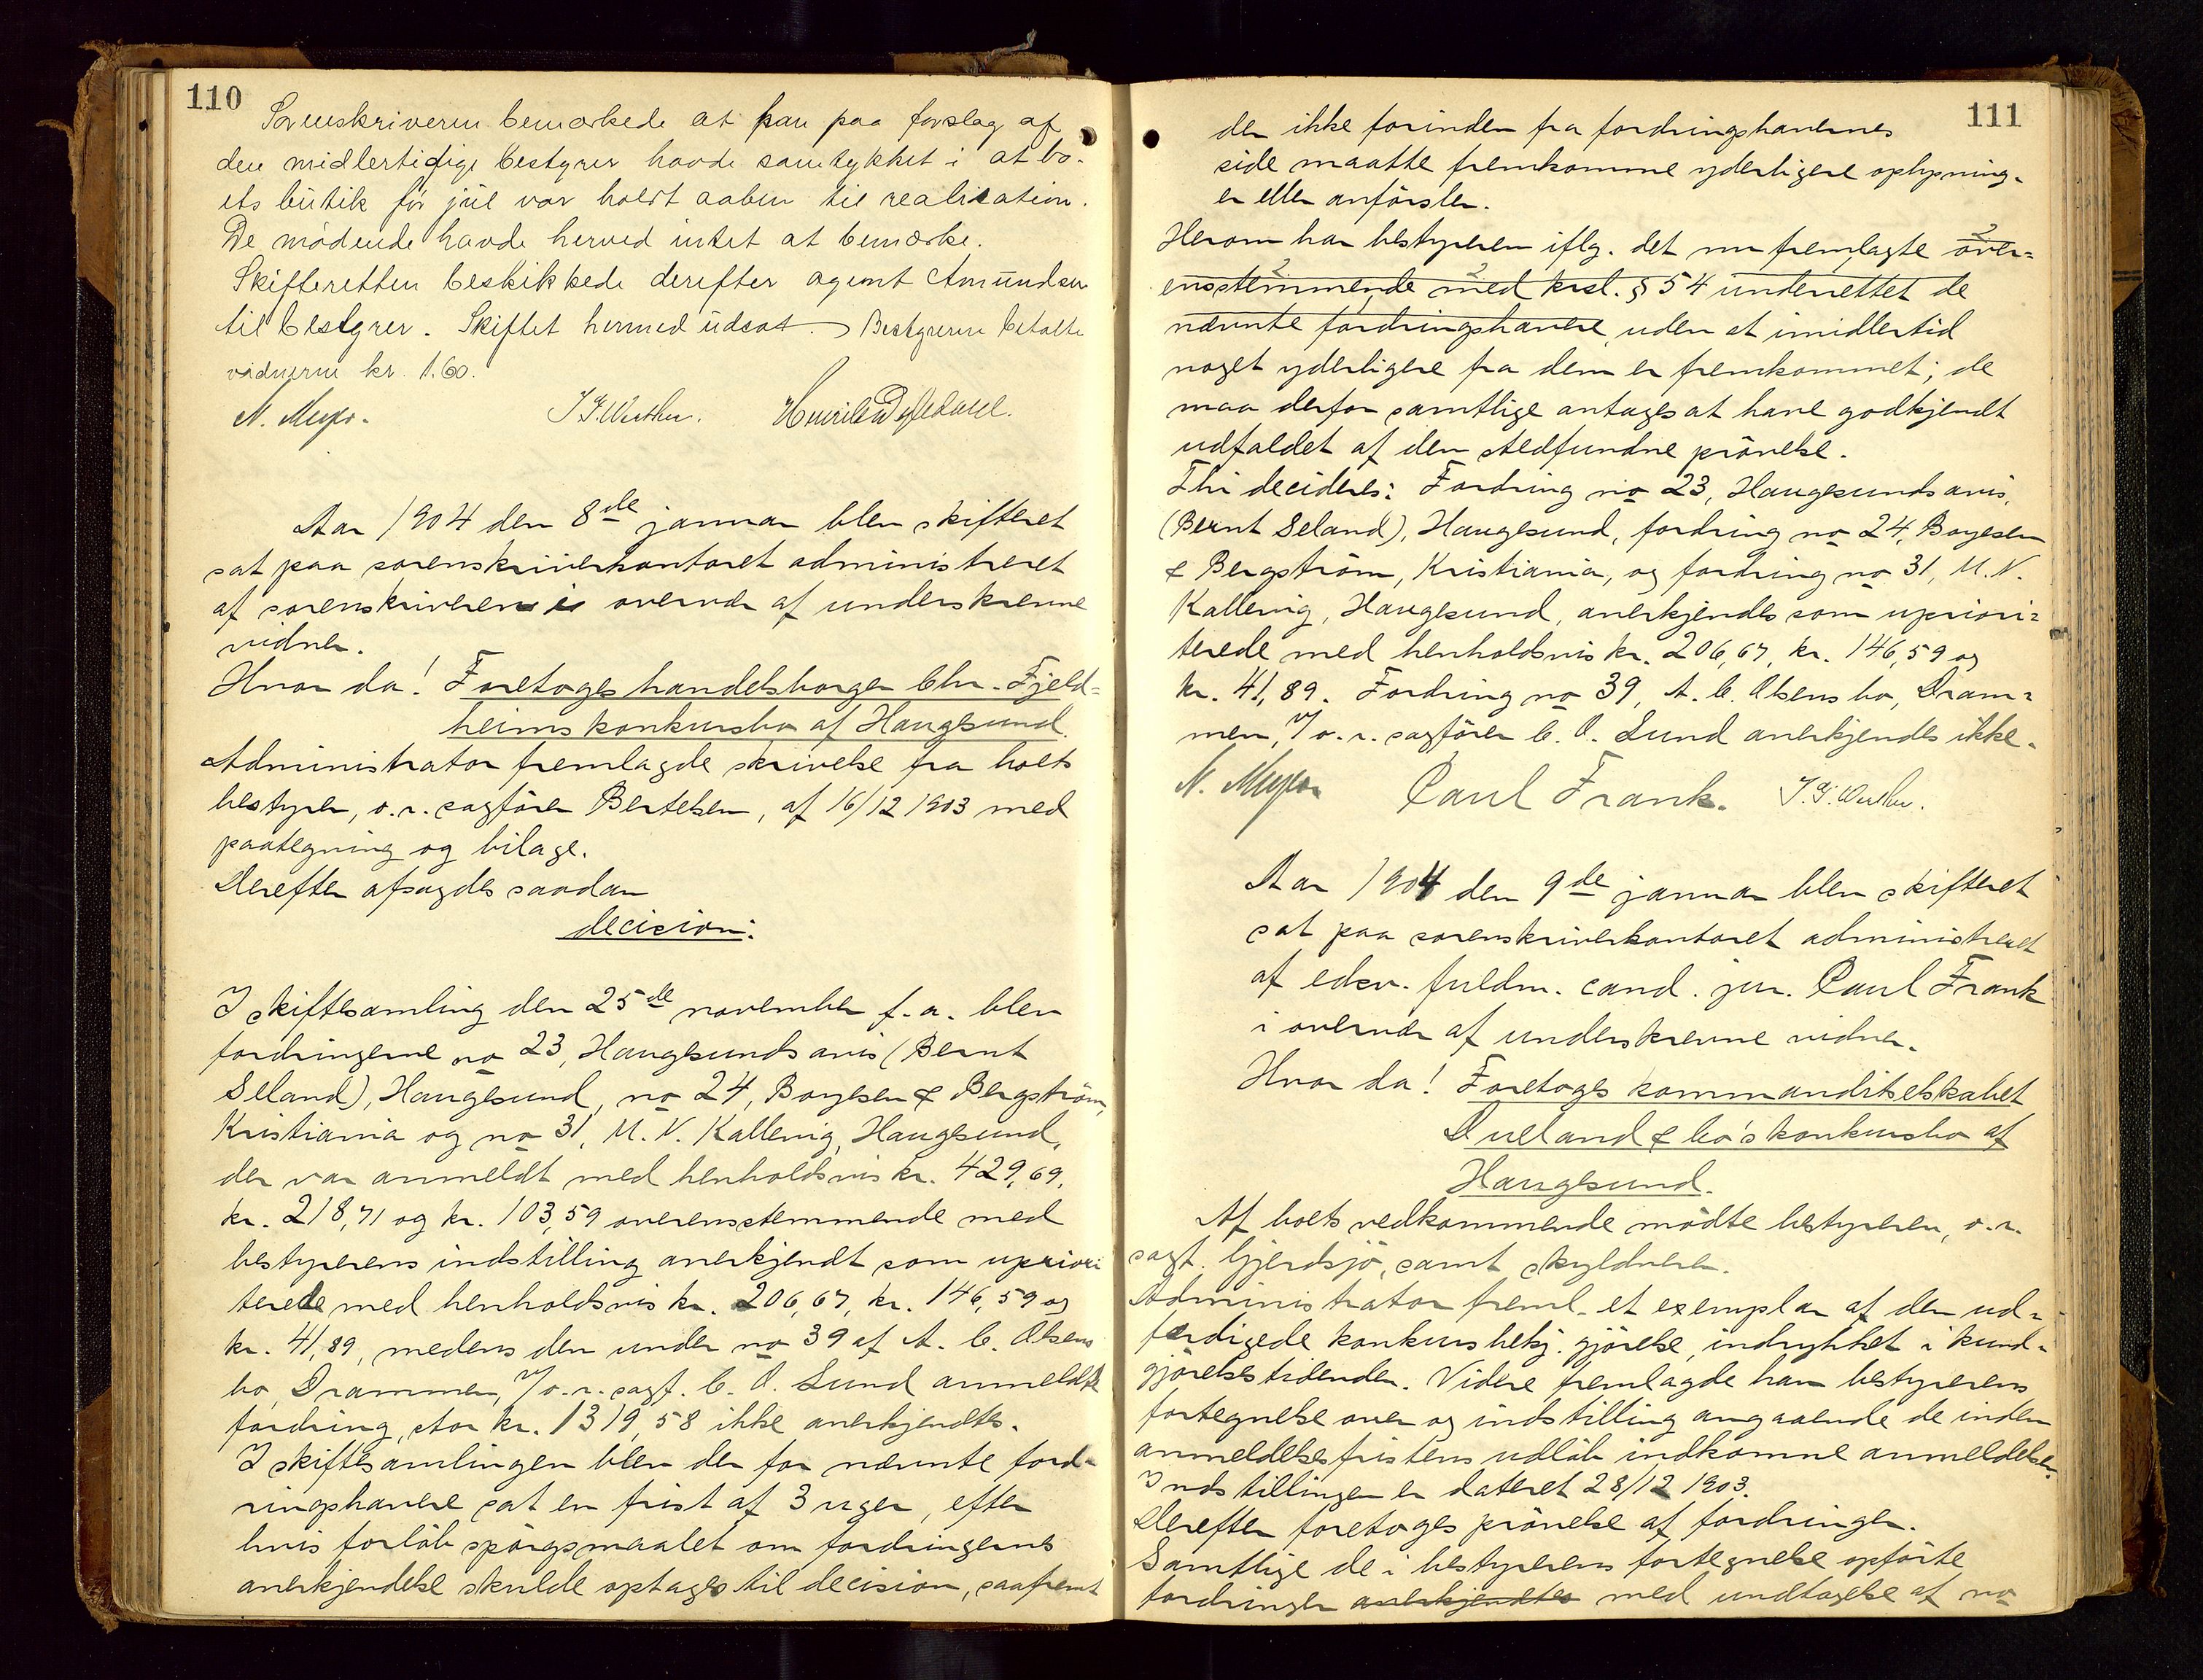 110
Sorenskriveren bemærkede at han paa forslag af
den midlertidige bestyrer havde samtykket i at bo-
ets butik før jul var holdt aaben til realisation.
De mødende havde herved intet at bemærke.
Skifteretten beskikkede derefter agent Amundsen
til bestyrer. Skiftet hermed udsat. Bestyreren betalte
vidnerne kr. 1.60.
N. Meyer.
Aar 1904 den 8de januar blev skifteret
sat paa sorenskriverkontoret administreret
af sorenskriveren i overvær af underskrevne
vidner.
Hvor da! Foretoges handelsborger Chr. Fjeld=
heims konkursbo af Haugesund.
Administrator fremlagde skrivelse fra boets
bestyrer, o.r.sagfører Bertelsen, af 16/12 1903 med
paategning og bilage.
Derefter afsagdes saadan
decision:
I skiftesamling den 25de november f.a. blev
fordringerne no 23, Haugesunds avis (Bernt
Seland), Haugesund, no 24, Boyesen & Bergström,
Kristiania og no 31, M. N. Kallevig, Haugesund,
der var anmeldt med henholdsvis kr. 429,69,
kr. 218,71 og kr. 103,59 overensstemmende med
bestyrerens indstilling anerkjendt som upriori
terede med henholdsvis kr. 206,67, kr. 146,59 og
kr. 41,89, medens den under no 39 af A. C. Olsens
bo, Drammen, v/ o.r.sagf. C. O. Lund anmeldte
fordring, stor kr. 1319,58 ikke anerkjendtes.
I skiftesamlingen blev der for nævnte ford-
ringshavere sat en frist af 3 uger, efter
hvis forløb spørgsmaalet om fordringernes
anerkjendelse skulde optages til decision, saafremt
111
der ikke forinden fra fordringshavernes
side maatte fremkomme yderligere oplysning-
er eller anførsler.
Herom har bestyreren iflg. det nu fremlagte over=
ensstemmende med krsl. § 54 underrettet de
nævnte fordringshavere, uden at imidlertid
noget yderligere fra dem er fremkommet; de
maa derfor samtlige antages at have godkjendt
udfaldet af den stedfundne prøvelse.
Thi decideres: Fordring no 23, Haugesunds avis,
(Bernt Seland), Haugesund, fordring no 24, Boyesen
& Bergström, Kristiania, og fordring no 31, M. N.
Kallevig, Haugesund, anerkjendes som upriori=
terede med henholdsvis kr. 206,67, kr. 146,59 og
kr. 41,89. Fordring no 39, A. C. Olsens bo, Dram=
men, v/ o.r.sagfører C. O. Lund anerkjendes ikke.
N. Meyer Paul Frank.
Aar 1904 den 9de januar blev skifteret
sat paa sorenskriverkontoret administreret
af edsv. fuldm. cand. jur. Paul Frank
i overvær af underskrevne vidner.
Hvor da! Foretoges kommanditselskabet
Dueland & Co's konkursbo af
Haugesund.
Af boets vedkommende mødte bestyreren, o.r.
sagf. Gjerdsjø, samt skyldneren.
Administrator freml. et exemplar af den ud-
færdigede konkursbekj. gjørelse, indrykket i kund-
gjørelsestidenden. Videre fremlagde han bestyrerens
fortegnelse over og indstilling angaaende de inden
anmeldelsesfristens udløb indkomne anmeldelser.
Indstillingen er dateret 28/12 1903.
Derefter foretoges prøvelse af fordringer.
Samtlige de i bestyrerens fortegnelse opførte
fordringer anerkjendtes med undtagelse af no